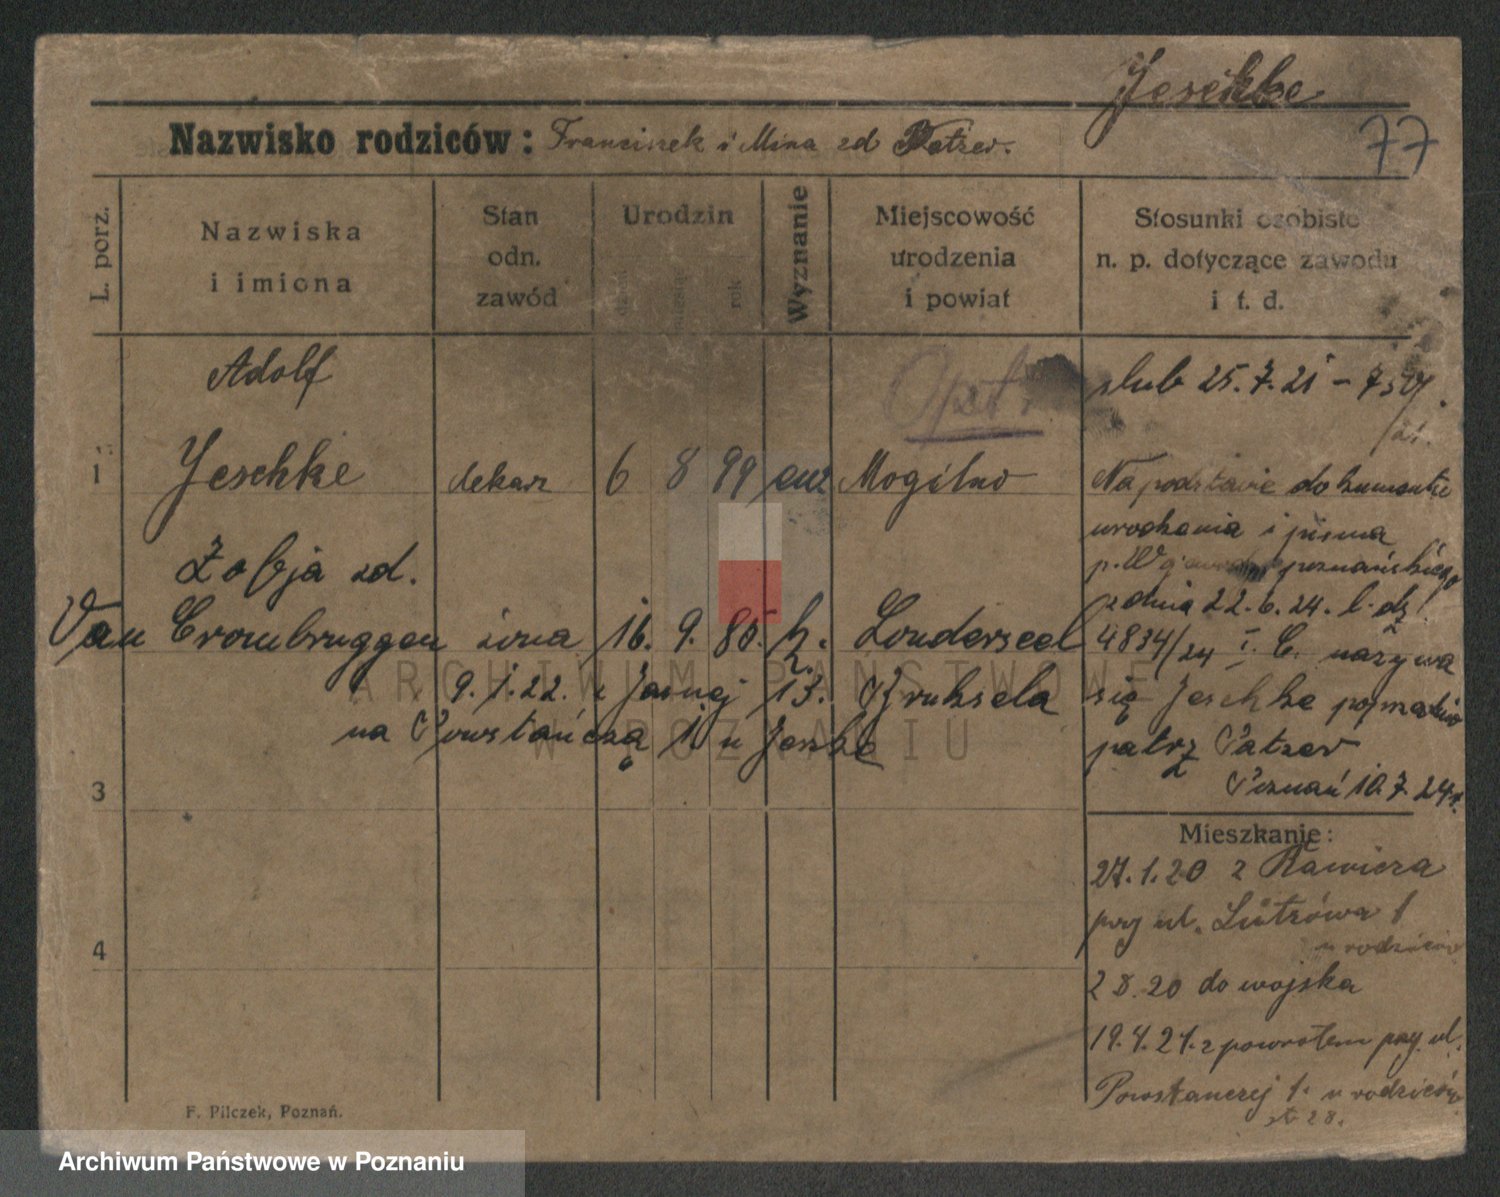 Jeschke
Nazwisko rodziców: Franciszek i Mina zd Patzer.
77
L. porz.
Nazwiska
i imiona
Stan
odn.
zawód
Urodzin
rok
Wyznanie
Miejscowość
urodzenia
i powiat
Stosunki osobiste
n. p. dotyczące zawodu
i t. d.
Adolf
1 Jeschke dekarz 6 8 99 Mogilno
Zofja zd.
Van Crombruggen żona 16. 9. 85. k. Londerseel
9. 1. 22. z Jasnej 13. Bruksela
na Powstańczą 1 u Jeszke
3
4
ślub 25.7.21
Na podstawie dokumentu
urodzenia i pisma
p. poznańskiego
z dnia 22.6.24. l. dz.
4834/24 I. C. nazywa
się Jeschke
patrz Patzer
Poznań 10.7.24r.
Mieszkanie:
27.1.20 z Rawicza
przy ul. Lützowa 1
u rodziców
2 8.20 do wojska
19.4.21. z powrotem przy ul.
Powstańczej 1. u rodziców
F. Pilczek, Poznań.
ARCHIWUM PAŃSTWOWE
W POZNANIU
Archiwum Państwowe w Poznaniu